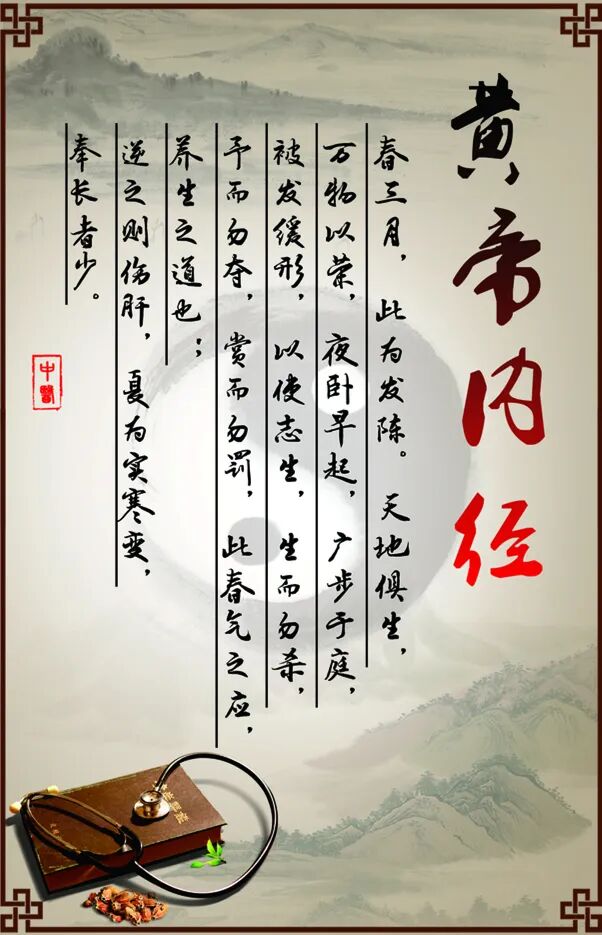 黄帝内经
春三月，此为发陈。天地俱生，
万物以荣，夜卧早起，广步于庭，
被发缓形，以使志生，生而勿杀，
予而勿夺，赏而勿罚，此春气之应，
养生之道也；
逆之则伤肝，夏为实寒变，
奉长者少。
中醫